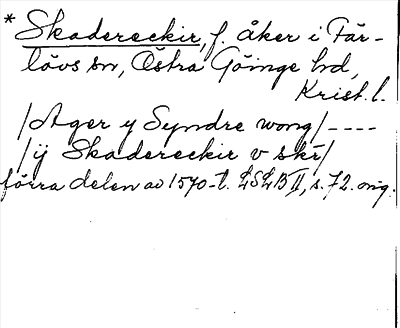 * Skadereckir, f. åker i Fär-
lövs sn, Östra Göinge hd,
Krist. l.
/Ager y Syndre wong/----
/ÿ Skadereckir v skr/
förra delen av 1570-t. LSLB II, s. 72. orig.